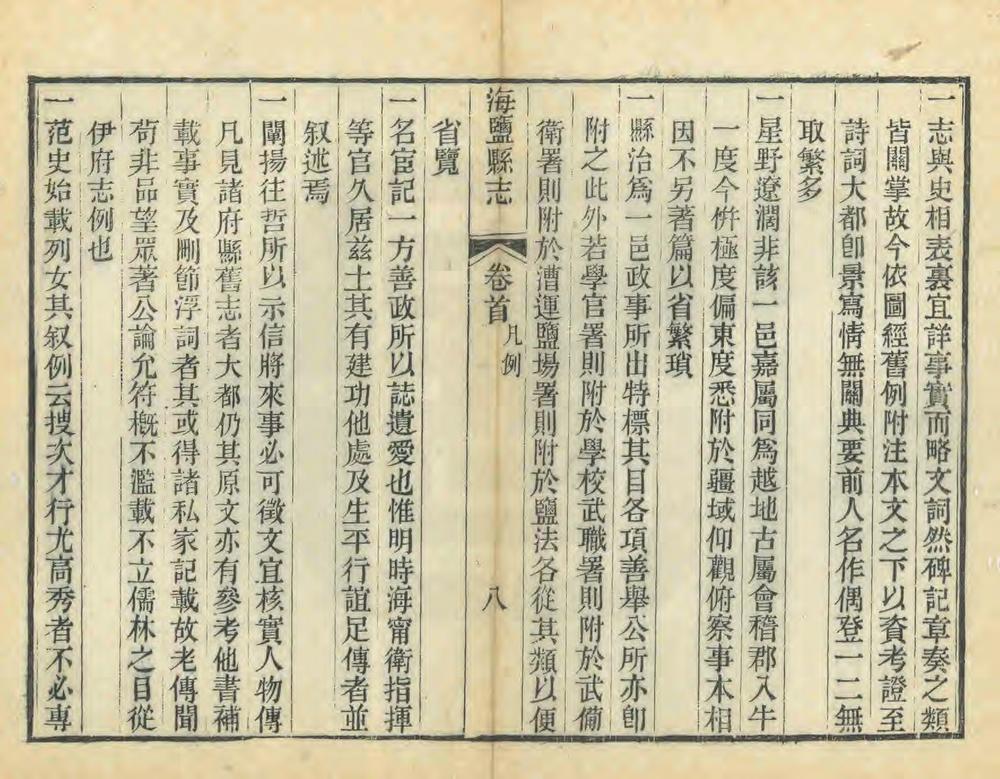 一志與史相表裏宜詳事實而略文詞然碑記章奏之類
皆關掌故今依圖經舊例附注本文之下以資考證至
詩詞大都卽景寫情無關典要前人名作偶登一二無
取繁多
一星野遼濶非該一邑嘉屬同爲越地古屬會稽郡入牛
一度今倂極度偏東度悉附於疆域仰觀俯察事本相
因不另著篇以省繁瑣
一縣治爲一邑政事所出特標其目各項善舉公所亦卽
附之此外若學官署則附於學校武職署則附於武備
衛署則附於漕運鹽場署則附於鹽法各從其類以便
海鹽縣志
卷首
凡例
八
省覽
一名宦記一方善政所以誌遺愛也惟明時海甯衛指揮
等官久居兹土其有建功他處及生平行誼足傳者並
叙述焉
一闡揚往哲所以示信將來事必可徵文宜核實人物傳
凡見諸府縣舊志者大都仍其原文亦有參考他書補
載事實及刪節浮詞者其或得諸私家記載故老傳聞
苟非品望眾著公論允符槪不濫載不立儒林之目從
伊府志例也
一范史始載列女其叙例云搜次才行尤高秀者不必專